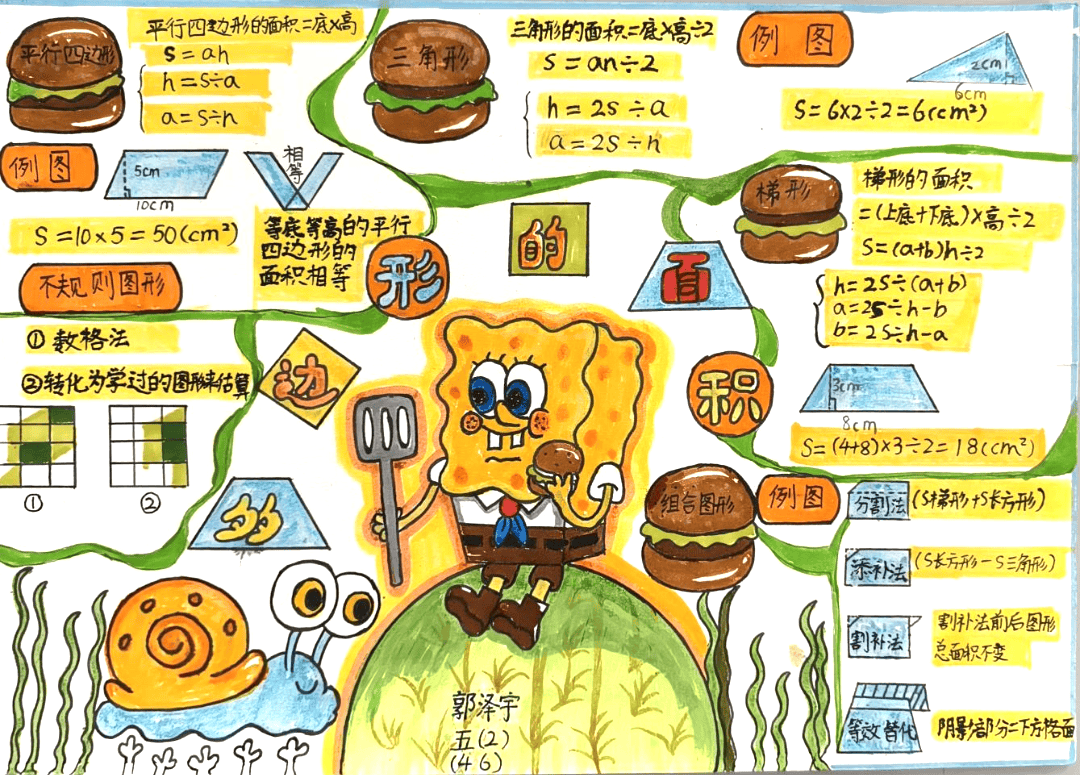 平行四边形
平行四边形的面积=底×高
s=ah
h=s÷a
a=s÷h
三角形
三角形的面积=底×高÷2
s=an÷2
h=2s÷a
a=2s÷h
例图
2cm
6cm
S=6×2÷2=6(cm²)
例图
5cm
10cm
S=10×5=50(cm²)
相等
等底等高的平行
四边形的
面积相等
不规则图形
①数格法
②转化为学过的图形来估算
①
②
多
边
形
的
面
积
梯形
梯形的面积
=(上底+下底)×高÷2
S=(a+b)h÷2
h=2S÷(a+b)
a=2s÷h-b
b=2s÷h-a
3cm
8cm
S=(4+8)×3÷2=18(cm²)
组合图形
例图
分割法
(S梯形+S长方形)
添补法
(S长方形-S三角形)
割补法
割补法前后图形
总面积不变
等效替代
阴影部分=下方格面
郭泽宇
五(2)
(46)